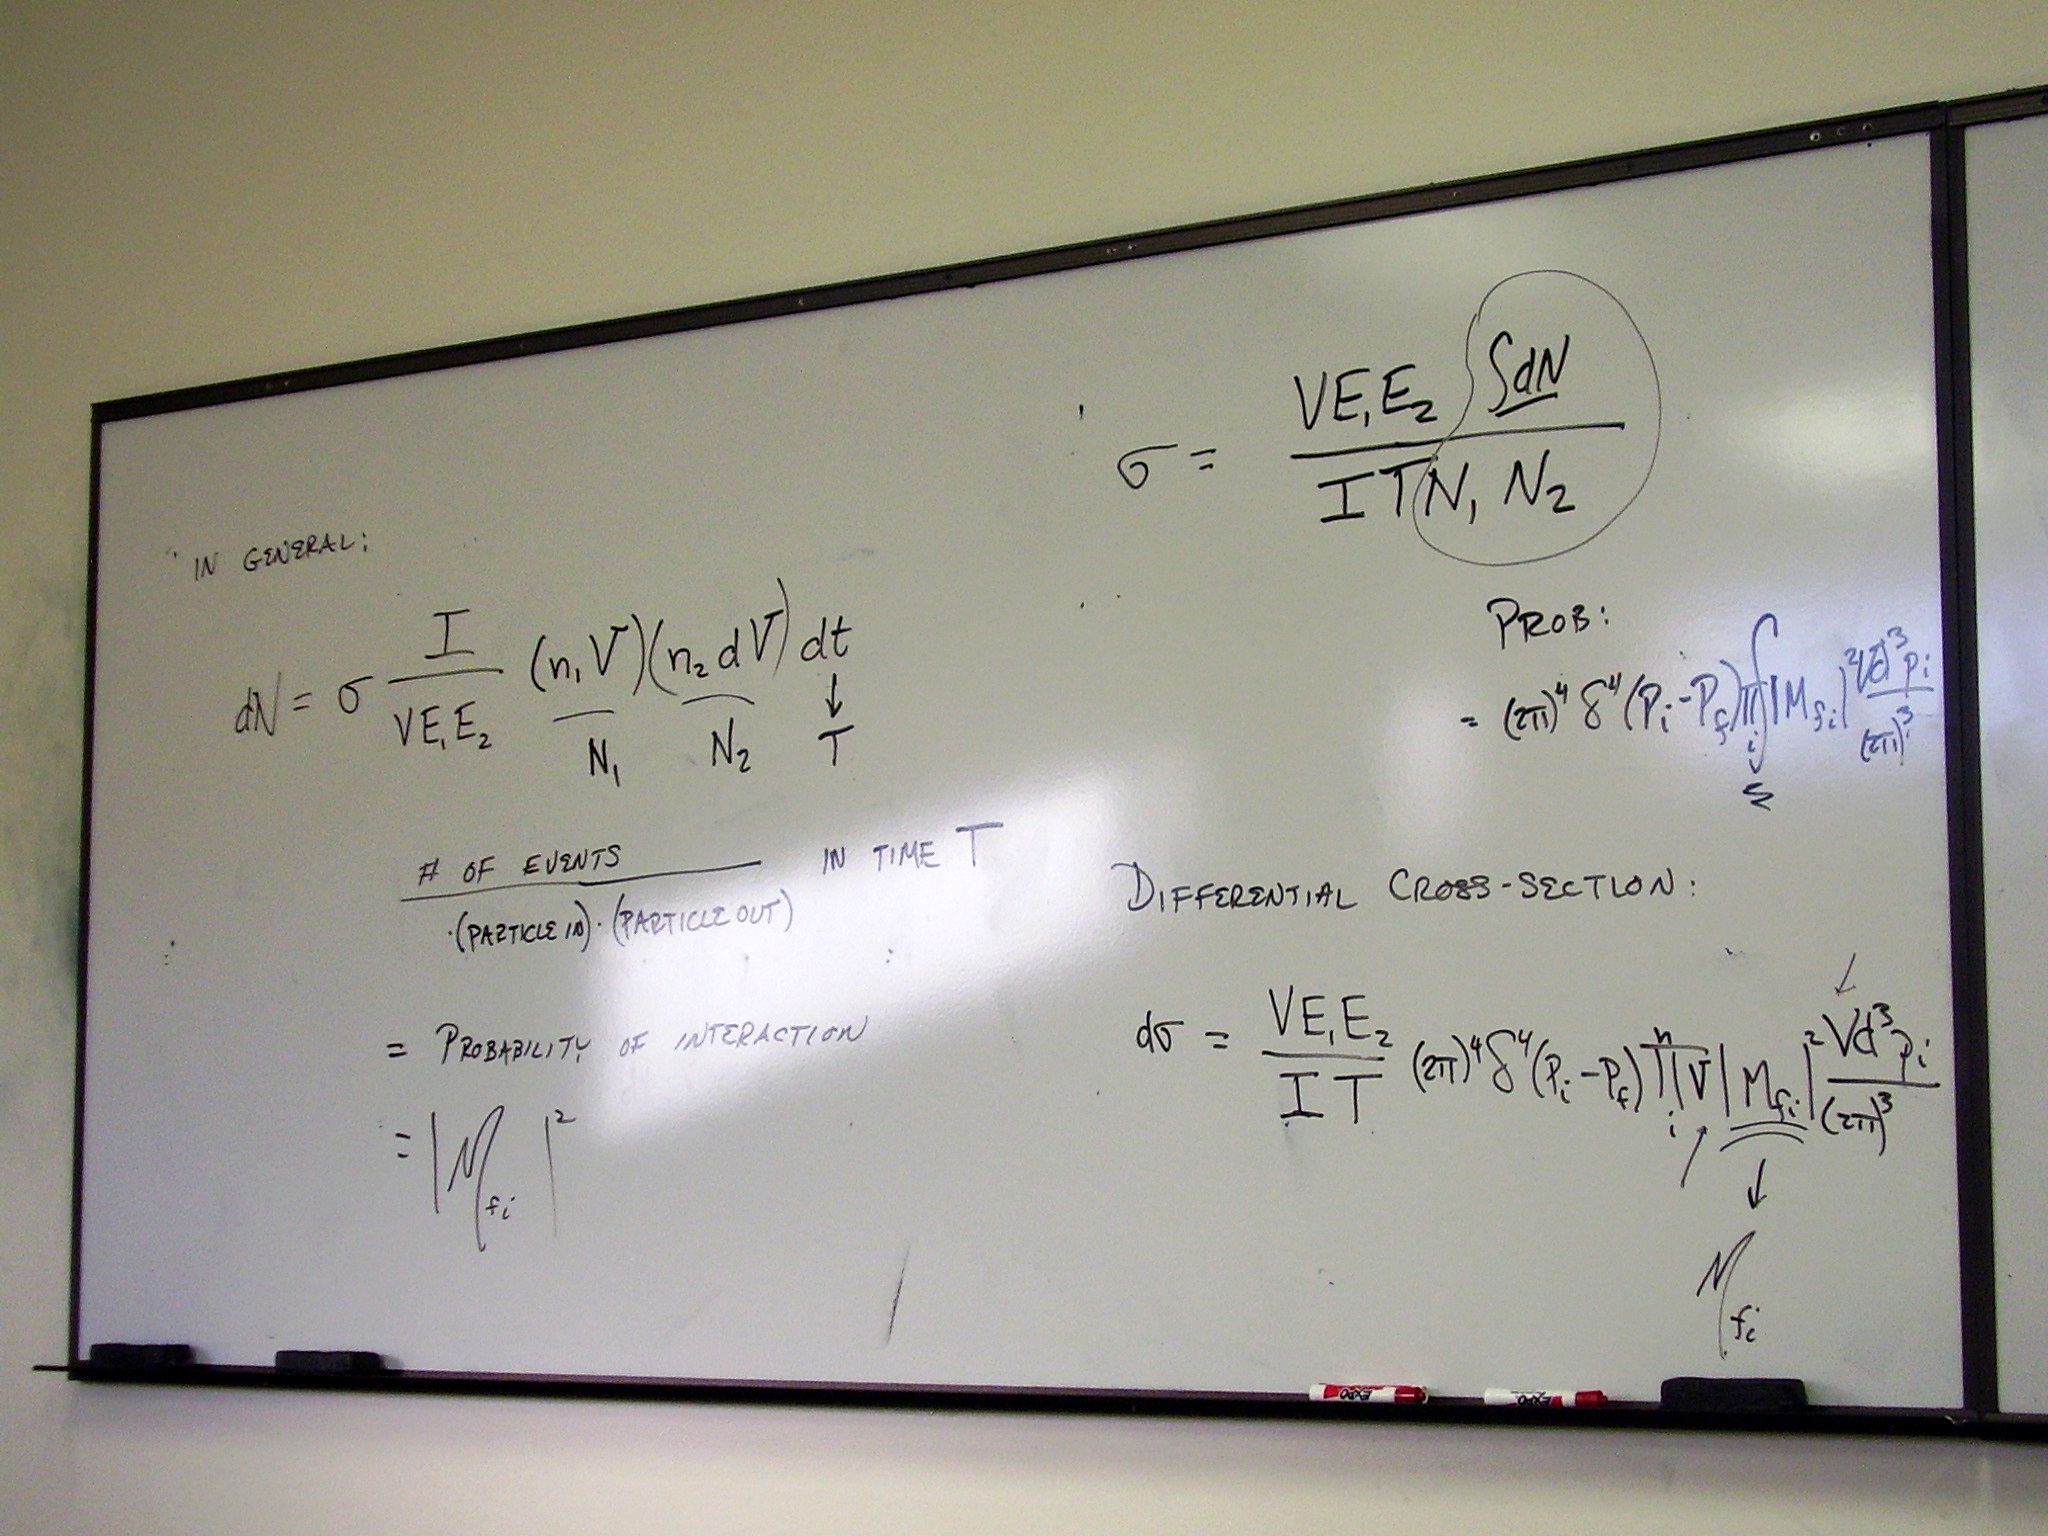 IN GENERAL:
dN = σ I / VE₁E₂ (n₁V)(n₂dV) dt
N₁ N₂ ↓ T
# OF EVENTS / ·(PARTICLE IN)·(PARTICLE OUT) IN TIME T
= PROBABILITY OF INTERACTION
= |M_fi|²
σ = VE₁E₂ ∫dN / I T N₁ N₂
PROB:
= (2π)⁴ δ⁴(P_i - P_f) ∏_i |M_fi|² Vd³p_i / (2π)³
DIFFERENTIAL CROSS-SECTION:
dσ = VE₁E₂ / I T (2π)⁴ δ⁴(P_i - P_f) ∏_i^n V |M_fi|² Vd³p_i / (2π)³
↓
M_fi
EXPO
EXPO